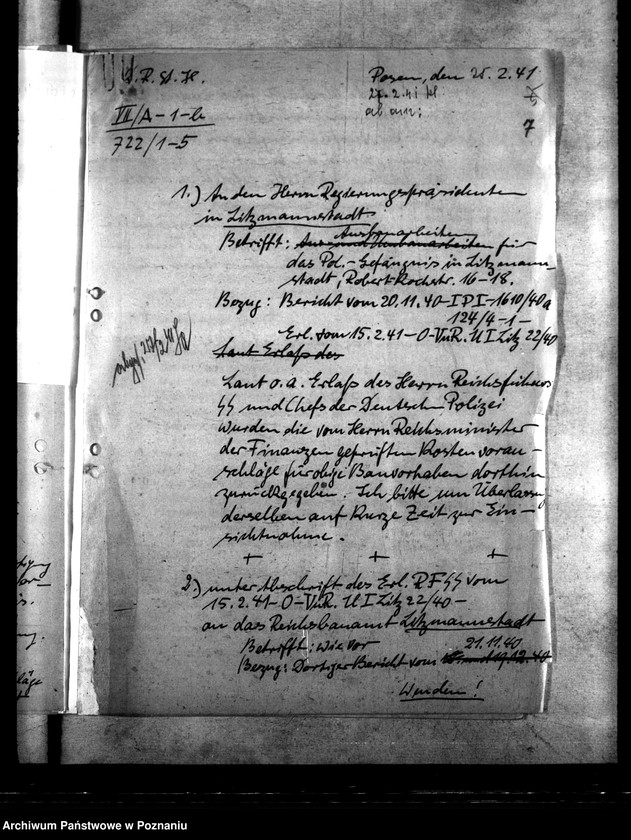 D. R. St. H.
Posen, den 25.2.41
27.2.41
ab am:
VII/A-1-b
722/1-5
7
1.) An den Herrn Regierungspräsidenten
in Litzmannstadt
Ausbauarbeiten
Betrifft: für
das Pol.-Gefängnis in Litzmann-
stadt, Robert-Kochstr. 16-18.
Bezug: Bericht vom 20.11.40-I P I-1610/40a
124/4-1-
Erl. vom 15.2.41-O-VuR. U I Litz 22/40
Laut Erlaß des
Laut o.a. Erlaß des Herrn Reichsführers
SS und Chefs der Deutschen Polizei
wurden die vom Herrn Reichsminister
der Finanzen geprüften Kostenvoran-
schläge für obige Bauvorhaben dorthin
zurückgegeben. Ich bitte um Überlassung
derselben auf kurze Zeit zur Ein-
sichtnahme.
+ + +
2.) unter Abschrift des Erl. RFSS vom
15.2.41-O-VuR. U I Litz 22/40-
an das Reichsbauamt Litzmannstadt
Betrifft: wie vor
21.11.40
Bezug: Dortiger Bericht vom
Wenden!
Archiwum Państwowe w Poznaniu